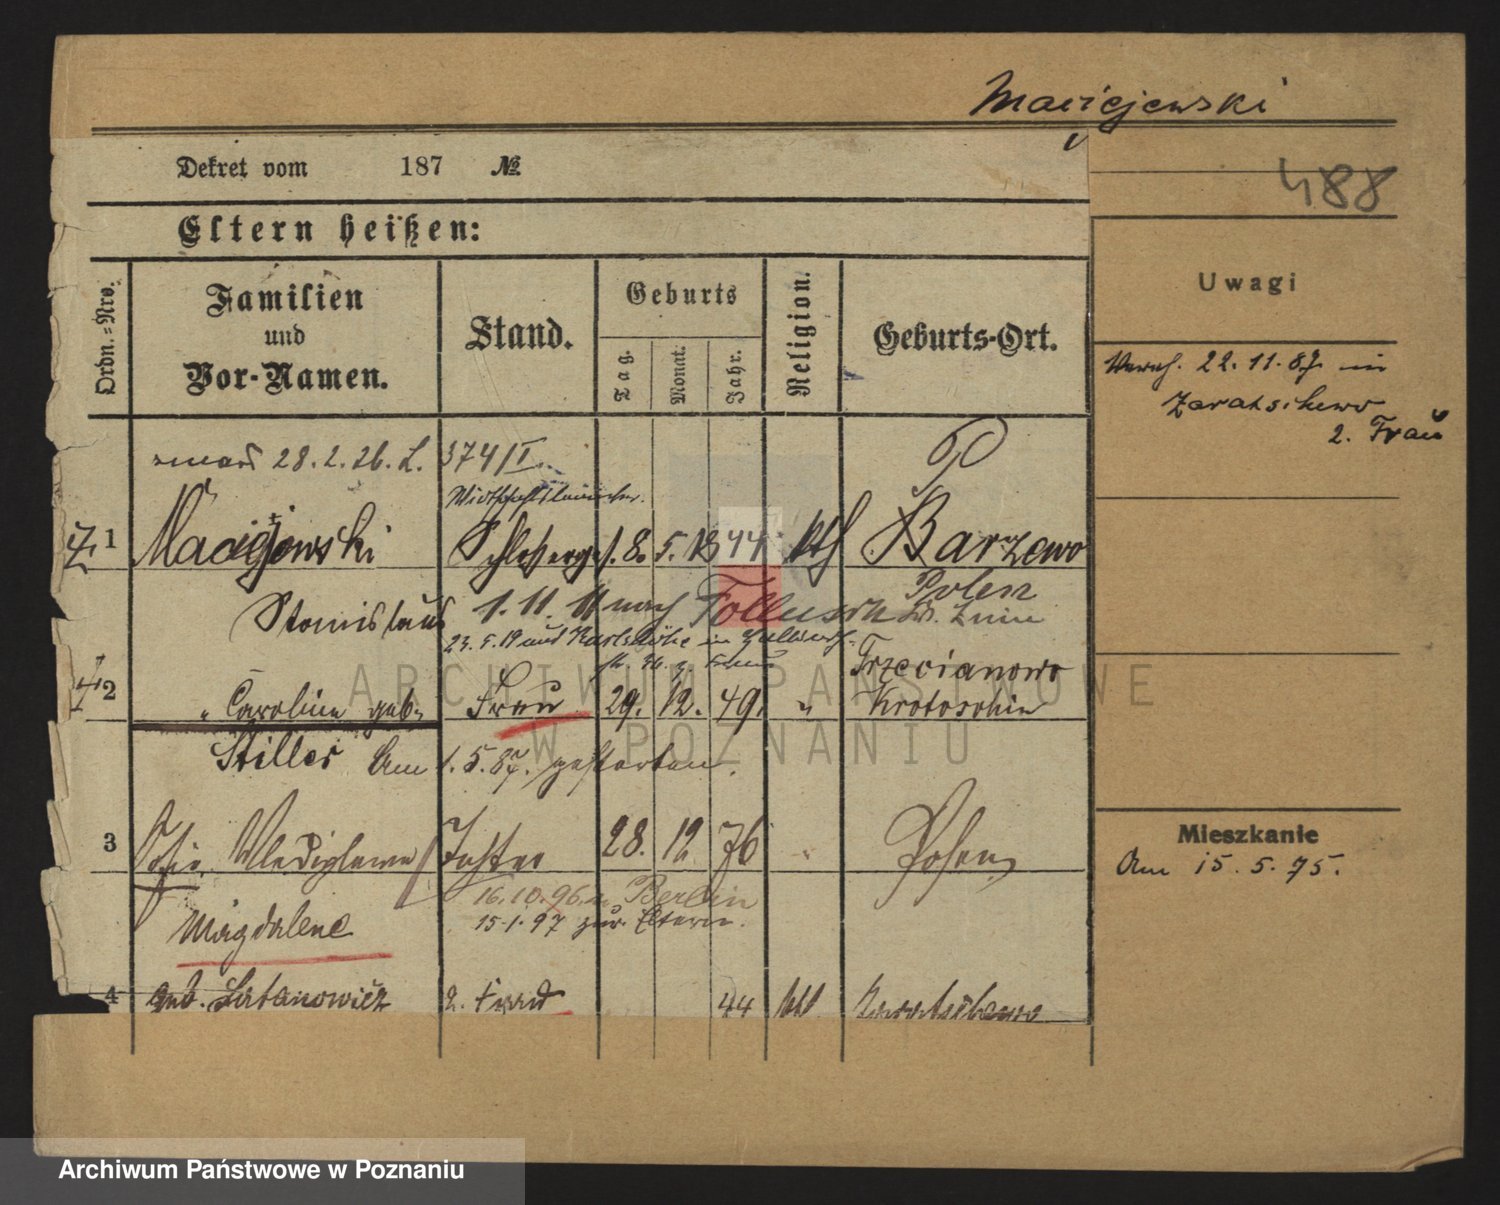 Maciejewski
Dekret vom 187 №
488
Eltern heißen:
Ordn.=Nro.
Familien
und
Vor-Namen.
Stand.
Geburts
Tag.
Monat.
Jahr.
Religion.
Geburts-Ort.
Uwagi
Verh. 22.11.87. in
Zaratschewo
2. Frau
zmarł 28.2.26. L. 374/I.
1 Maciejewski 8. 5. 44 kth Barzewo
Stanislaus 1. 11. 11 nach
Polen
Kr. Znin
23.5.19 aus Karlshöhe in
Trzecianowo
2 " Caroline geb. Frau 29. 12. 49. " Krotoschin
Stiller Am 1.5.87. gestorben.
3 Tochter 28. 12 76 " Posen
16.10.96. n. Berlin
15.1.97 zur. Eltern.
Magdalene
4 geb. Latanowicz 2. Frau 44 kth
Mieszkanie
Am 15.5.75.
ARCHIWUM PAŃSTWOWE
W POZNANIU
Archiwum Państwowe w Poznaniu